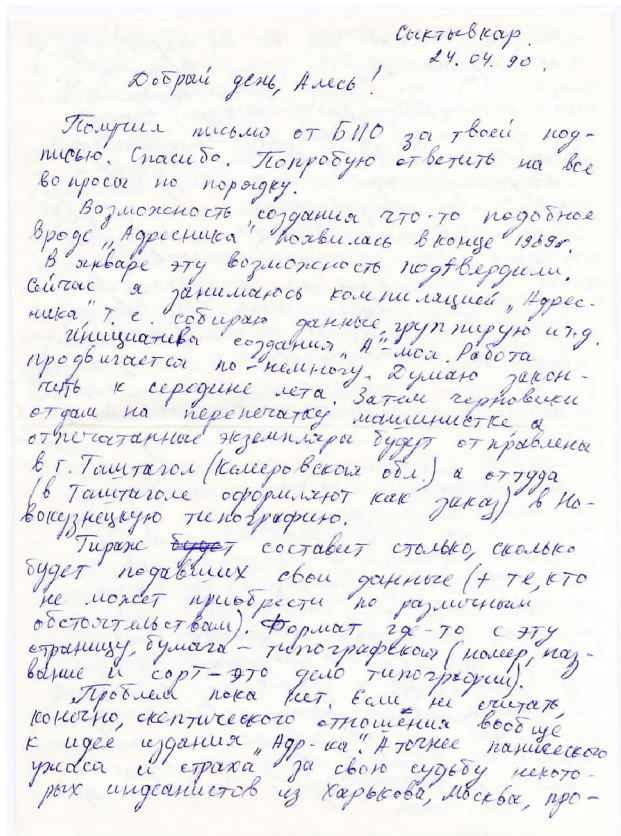 Сыктывкар.
24.04.90.
Добрый день, Алесь!
Получил письмо от БПО за твоей под-
писью. Спасибо. Попробую ответить на все
вопросы по порядку.
Возможность создания что-то подобное
вроде „Адресника" появилась в конце 1989г.
В январе эту возможность подтвердили.
Сейчас я занимаюсь компиляцией „Адрес-
ника" т.е. собираю данные, группирую и т.д.
Инициатива создания „А"-моя. Работа
продвигается по-немногу. Думаю закон-
чить к середине лета. Затем черновики
отдам на перепечатку машинистке, а
отпечатанные экземпляры будут отправлены
в г. Таштагол (Кемеровская обл.) а оттуда
(в Таштаголе оформляют как заказ) в Но-
вокузнецкую типографию.
Тираж будет составит столько, сколько
будет подавших свои данные (+ те, кто
не может приобрести по различным
обстоятельствам). Формат где-то с эту
страницу, бумага - типографская (номер, наз-
вание и сорт - это дело типографии).
Проблем пока нет. Если не считать,
конечно, скептического отношения вообще
к идее издания „Адр-ка". А точнее панического
ужаса и страха за свою судьбу некото-
рых индеанистов из Харькова, Москвы, про-